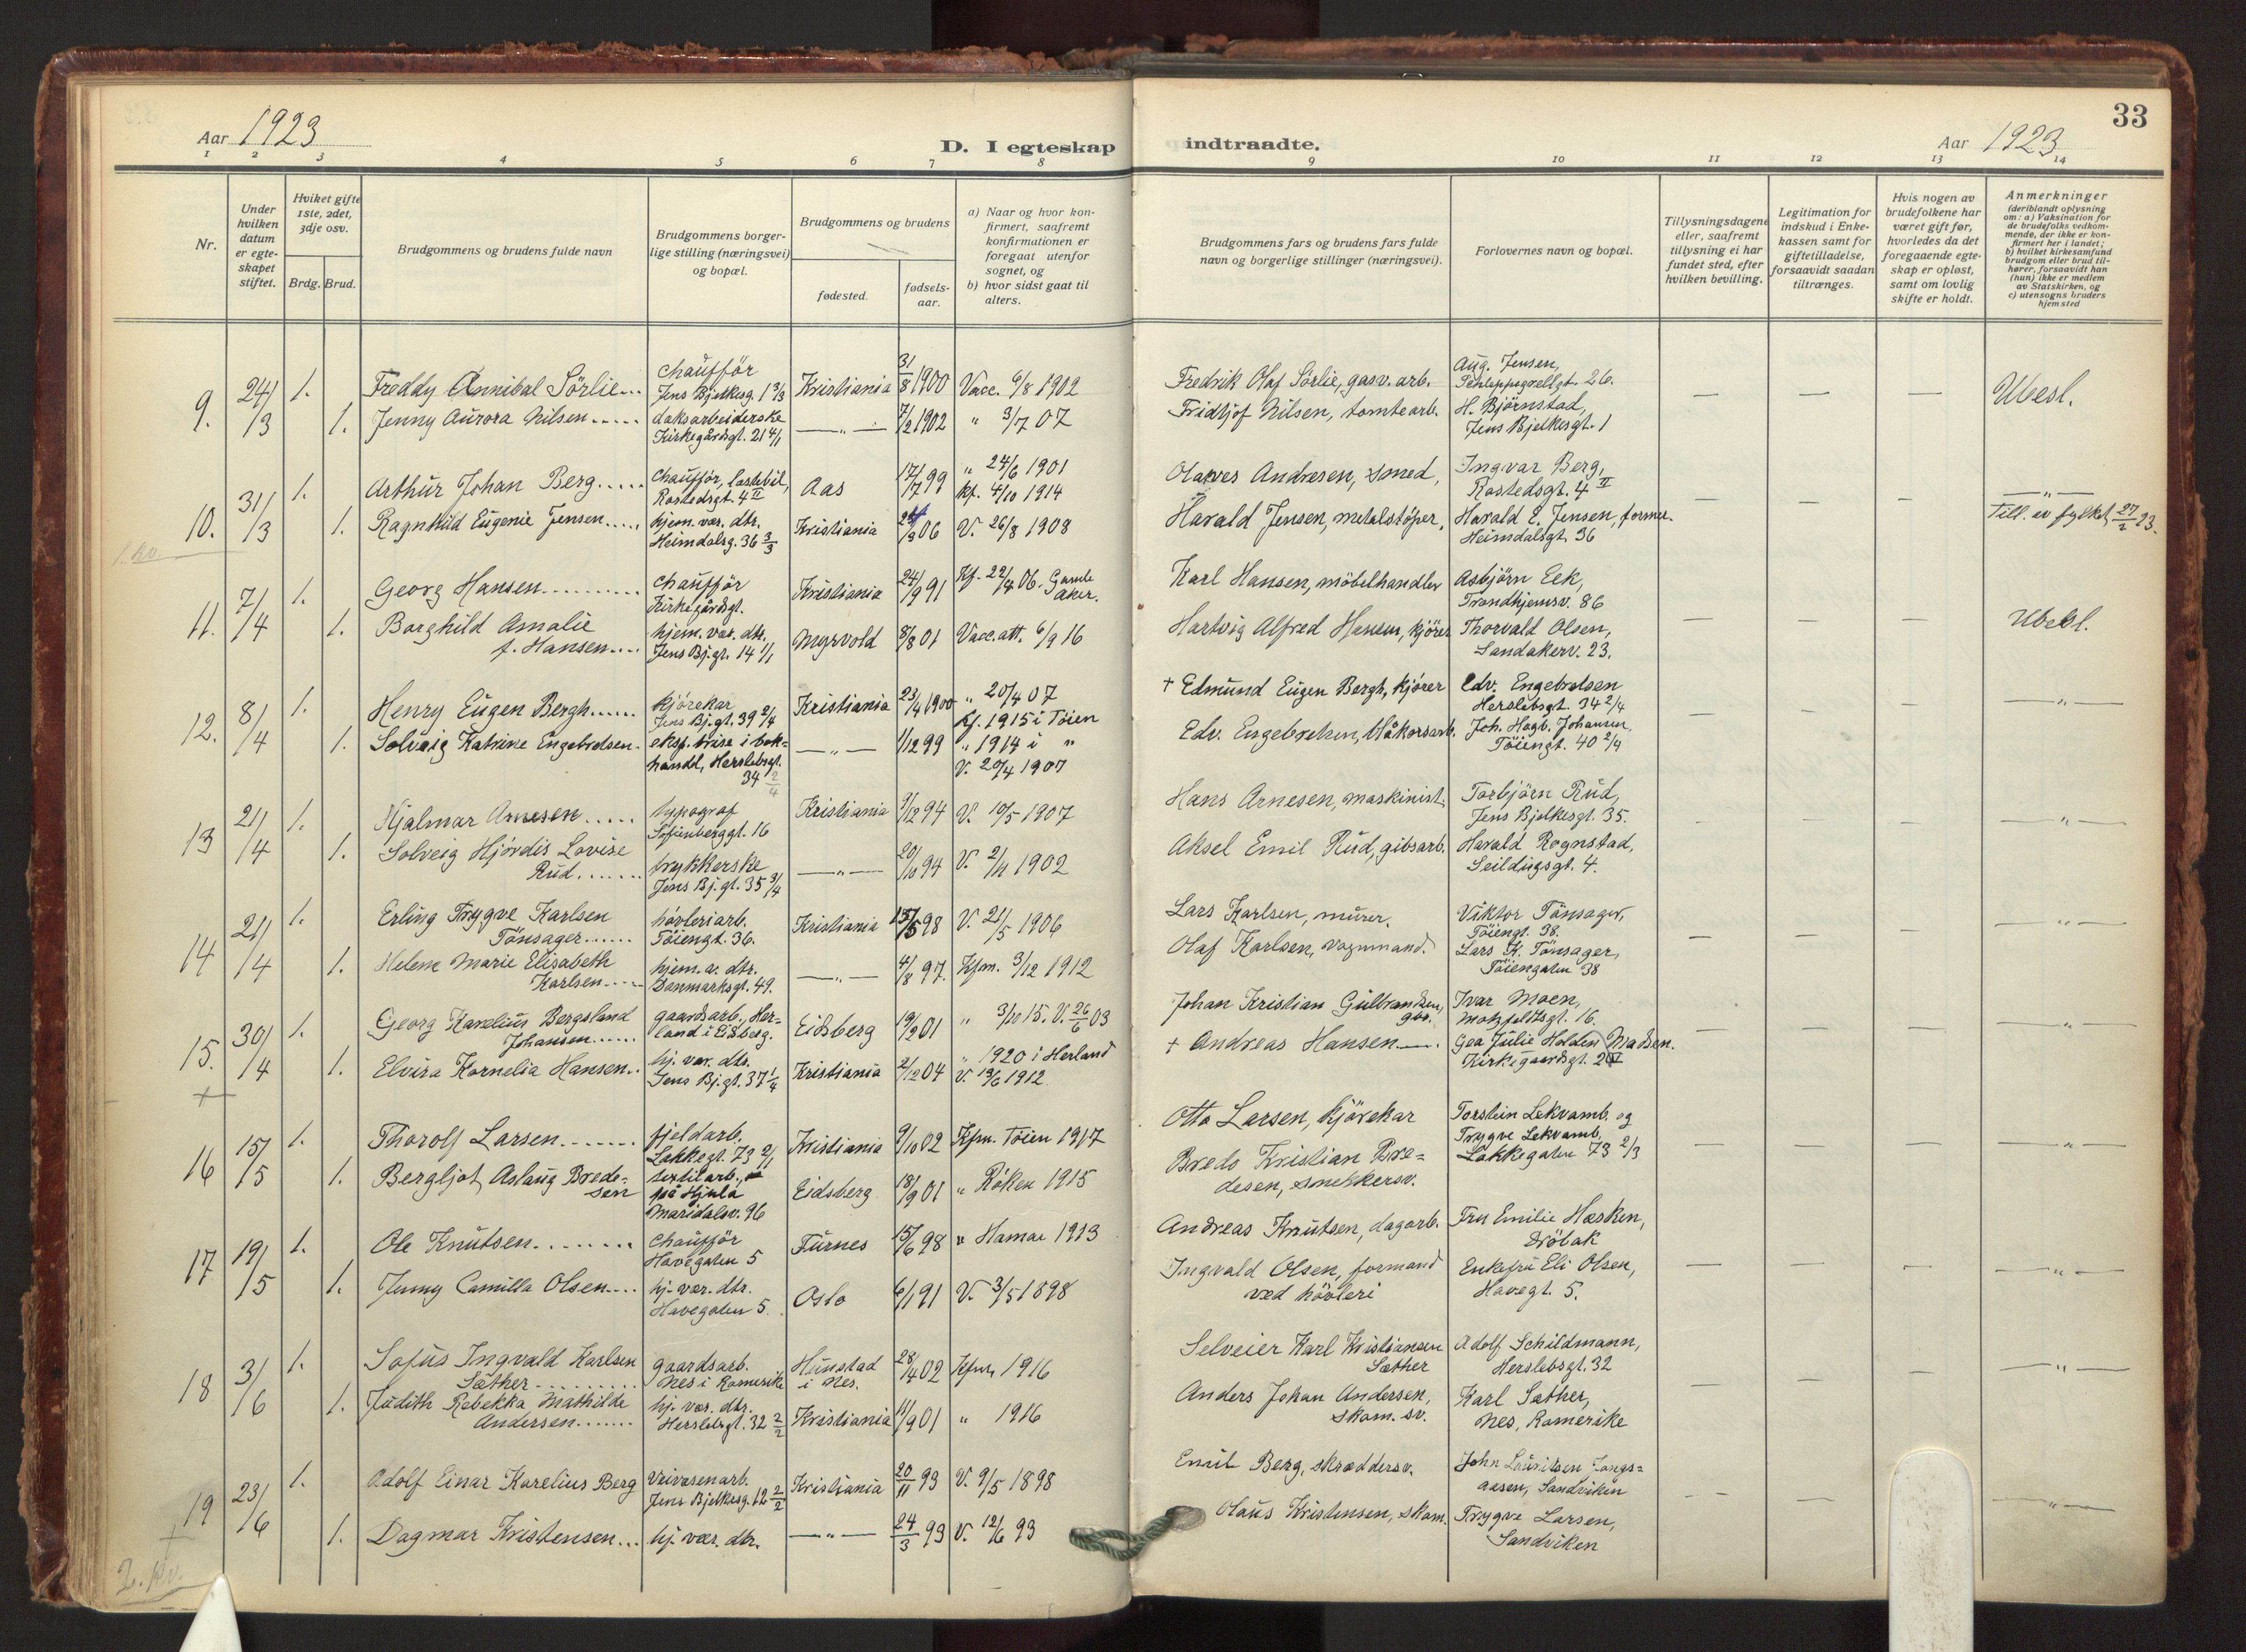 33
Aar 1923
D. I egteskap indtraadte.
Aar 1923
1 2 3 4 5 6 7 8 9 10 11 12 13 14
Nr.
Under hvilken datum er egteskapet stiftet.
Hviket gifte 1ste, 2det, 3dje osv.
Brdg. Brud.
Brudgommens og brudens fulde navn
Brudgommens borgerlige stilling (næringsvei) og bopæl.
Brudgommens og brudens
fødested.
fødselsaar.
a) Naar og hvor konfirmert, saafremt konfirmationen er foregaat utenfor sognet, og
b) hvor sidst gaat til alters.
Brudgommens fars og brudens fars fulde navn og borgerlige stillinger (næringsvei).
Forlovernes navn og bopæl.
Tillysningsdagene eller, saafremt tillysning ei har fundet sted, efter hvilken bevilling.
Legitimation for indskud i Enkekassen samt for giftetilladelse, forsaavidt saadan tiltrænges.
Hvis nogen av brudefolkene har været gift før, hvorledes da det foregaaende egteskap er opløst, samt om lovlig skifte er holdt.
Anmerkninger
(deriblandt oplysning om: a) Vaksination for de brudefolks vedkommende, der ikke er konfirmert her i landet; b) hvilket kirkesamfund brudgom eller brud tilhører, forsaavidt han (hun) ikke er medlem av Statskirken, og c) utensogns bruders hjemsted
9. 24/3 1. Freddy Annibal Sörlie... chaufför Jens Bjelkesg. 1 3/3 Kristiania 31/8 1900 Vacc. 6/8 1902 Fredrik Olaf Sörlie, gasv. arb. Aug. Jensen, Schleppegrellgt. 26. — — — Ubesl.
1. Jenny Aurora Nilsen..... daksarbeiderske Kirkegårdsgt. 21 4/1 —„— 7/2 1902 „ 3/7 07 Fridtjof Nilsen, tomtearb. H. Björnstad, Jens Bjelkesgt. 1
10. 31/3 1. Arthur Johan Berg..... Chaufför, lastebil, Rostedsgt. 4 II Aas 17/7 99 „ 24/6 1901 kf. 4/10 1914 Olaves Andresen, smed, Ingvar Berg, Rostedsgt. 4 II — — — —„—
1. Ragnhild Eugenie Jensen..... hjem. vær. dtr. Heimdalsg. 36 3/3 Kristiania /3 06 V. 26/8 1908 Harald Jensen, metalstöper, Harald E. Jensen, former. Heimdalsgt. 36 Till. av fylket 27/2 23.
1. kv.
11. 7/4 1. Georg Hansen.......... chaufför Kirkegårdsgt. Kristiania 24/9 91 Kf. 22/4 06. Gamle Aker. Karl Hansen, möbelhandler Asbjörn Eek, Trondhjemsv. 86
1. Borghild Amalie f. Hansen.... hjem. vær. dtr. Jens Bj.gt. 14 1/1 Myrvold 8/8 01 Vacc.att. 6/9 16 Hartvig Alfred Hansen, kjörer Thorvald Olsen, Sandakerv. 23. — — — Ubesl.
12. 8/4 1. Henry Eugen Bergh...... kjörekar Jens Bj.gt. 39 2/4 Kristiania 23/4 1900 „ 20/4 07 Kf. 1915 i Töien + Edmund Eugen Bergh, kjörer Edv. Engebretsen Herslebsgt. 34 2/4 — — — —„—
1. Solveig Katrine Engebretsen. eksp. trise i bokhandl, Herslebsgt. 34 2/4 —„— 1/12 99 „ 1914 i „ V. 20/4 1907 Edv. Engebretsen, blåkorsarb. Joh. Hagb. Johansen, Töiengt. 40 2/4
13 21/4 1. Hjalmar Arnesen..... typograf Sofienberggt. 16 Kristiania 9/12 94 V. 10/5 1907 Hans Arnesen, maskinist. Torbjörn Rud, Jens Bjelkesgt. 35. — — — —„—
1. Solveig Hjördis Lovise Rud....... trykkerske Jens Bj.gt. 35 3/4 —„— 20/10 94 V. 2/11 1902 Aksel Emil Rud, gibsarb. Harald Rognstad, Seildugsgt. 4.
14 21/4 1. Erling Trygve Karlsen Tönsager...... hövleriarb. Töiengt. 36. Kristiania 15/5 98 V. 21/5 1906 Lars Karlsen, murer. Viktor Tönsager, Töiengt. 38. — — — —„—
1. Helene Marie Elisabeth Karlsen..... hjem. v. dtr. Danmarksgt. 49. —„— 4/8 97. Kfm. 3/12 1912 Olaf Karlsen, vognmand. Lars K. Tönsager, Töiengaten 38
15. 30/4 1. Georg Karelius Bergsland Johansen...... gaardsarb., Herland i Eidsberg. Eidsberg 19/2 01 „ 3/10 15. V. 26/6 03 Johan Kristian Gulbrandsen, gbr. Ivar Moen, Motzfeldtsgt. 16. — — — —„—
1. Elvira Kornelia Hansen.. hj. vær. dtr. Jens Bj.gt. 37 1/4 Kristiania 2/12 04 „ 1920 i Herland V. 19/6 1912 + Andreas Hansen —. Gea Julie Holden Madsen. Kirkegaardsgt. 2
16 15/5 1. Thorolf Larsen....... fjeldarb. Lakkegt. 73 2/1 Kristiania 9/10 02 Kfm. Töien 1917 Otto Larsen, kjörekar Torstein Lekvamb. og Trygve Lekvamb. Lakkegaten 73 2/3 — — — —„—
1. Bergljot Aslaug Bredesen textilarb., på Hjula Maridalsv. 96 Eidsberg 18/9 01 „ Röken 1915 Bredo Kristian Bredesen, snekkersv.
17 19/5 1. Ole Knutsen........ chaufför Havegaten 5 Furnes 15/6 98 „ Hamar 1913 Andreas Knutsen, dagarb. Fru Emilie Hasken, Dröbak
1. Jenny Camilla Olsen.... hj. vær. dtr. Havegaten 5. Oslo 6/1 91 V. 3/5 1898 Ingvald Olsen, formand ved hövleri Enkefru Eli Olsen, Havegt. 5. — — — —„—
18 3/6 1. Sofus Ingvald Karlsen Sæther......... gaardsarb. Nes i Romerike Hunstad i Nes. 28/4 02 Kfm, 1916 Selveier Karl Kristiansen Sæther Adolf Schildmann, Herslebsgt. 32 — — — —„—
1. Judith Rebekka Mathilde Andersen....... hj. vær. dtr. Herslebsgt. 32 2/2 Kristiania 11/9 01 „ 1916 Anders Johan Andersen, skom. sv. Karl Sæther, Nes, Romerike
19 23/6 1. Adolf Einar Karelius Berg veivæsenarb. Jens Bjelkesg. 12 2/2 Kristiania 20/11 93 V. 9/5 1898 Emil Berg, skræddersv. John Lauritsen aasen, Sandviken — — — —„—
1. Dagmar Kristensen... hj. vær. dtr. —„— 24/3 93 V. 12/6 93 Olaus Kristensen, skom. Trygve Larsen, Sandviken
2. kv.